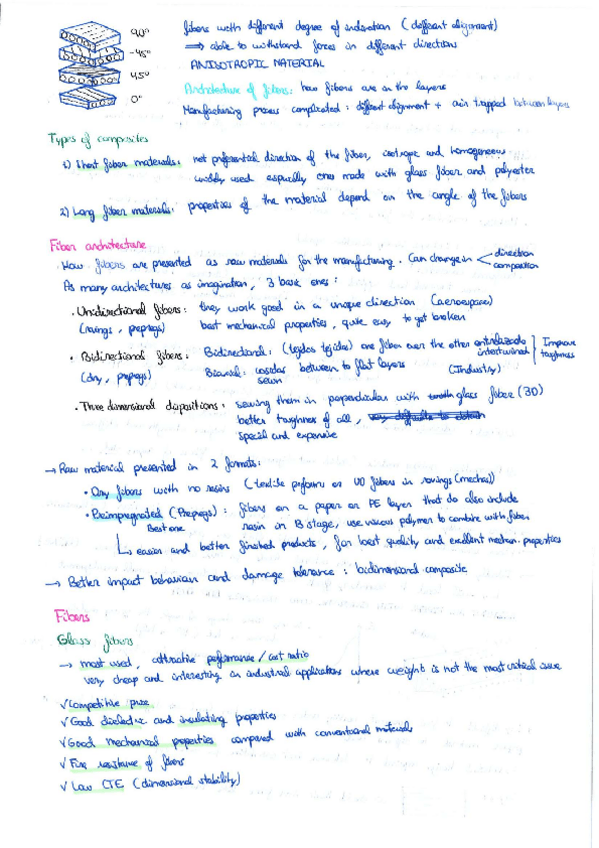 90° fibers with different degree of inclination (different alignment)
-45° ⟹ able to withstand forces in different directions
ANISOTROPIC MATERIAL
45° Architecture of fibers: how fibers are in the layers
0° Manufacturing process complicated: different alignment + air trapped between layers
Types of composites
1) Short fiber materials: not preferential direction of the fiber, isotropic and homogeneous
widely used especially ones made with glass fiber and polyester
2) Long fiber materials: properties of the material depend on the angle of the fibers
Fiber architecture
How fibers are presented as raw materials for the manufacturing. Can change in < direction
composition
As many architectures as imagination, 3 basic ones:
· Unidirectional fibers: they work good in a unique direction (aerospace)
(rovings, prepregs) best mechanical properties, quite easy to get broken
• Bidirectional fibers: Bidirectional: (tejidos tejidas) one fiber even the other entrelazado
intertwined } Improve
toughness
(dry, prepregs) Biaxial: cosidas between to flat layers (Industry)
sewn
· Three dimensional dispositions: sewing them in perpendicular with glass fiber (3D)
better toughness of all,
special and expensive
→ Raw material presented in 2 formats:
· Dry fibers with no resins (textile preforms or UD fibers in rovings (mechas))
· Preimpregnated (Prepregs): fibers on a paper or PE layer that do also include
Best one resin in B stage, use viscous polymer to combine with fiber
↳ easier and better finished products, for best quality and excellent mechan. properties
→ Better impact behaviour and damage tolerance: bidimensional composite
Fibers
Glass fibers
→ most used, attractive performance/cost ratio
very cheap and interesting in industrial applications where weight is not the most critical issue
✓ Competitive price
✓ Good dielectric and insulating properties
✓ Good mechanical properties compared with conventional materials
✓ Fire resistance of fibers
✓ Low CTE (dimensional stability)